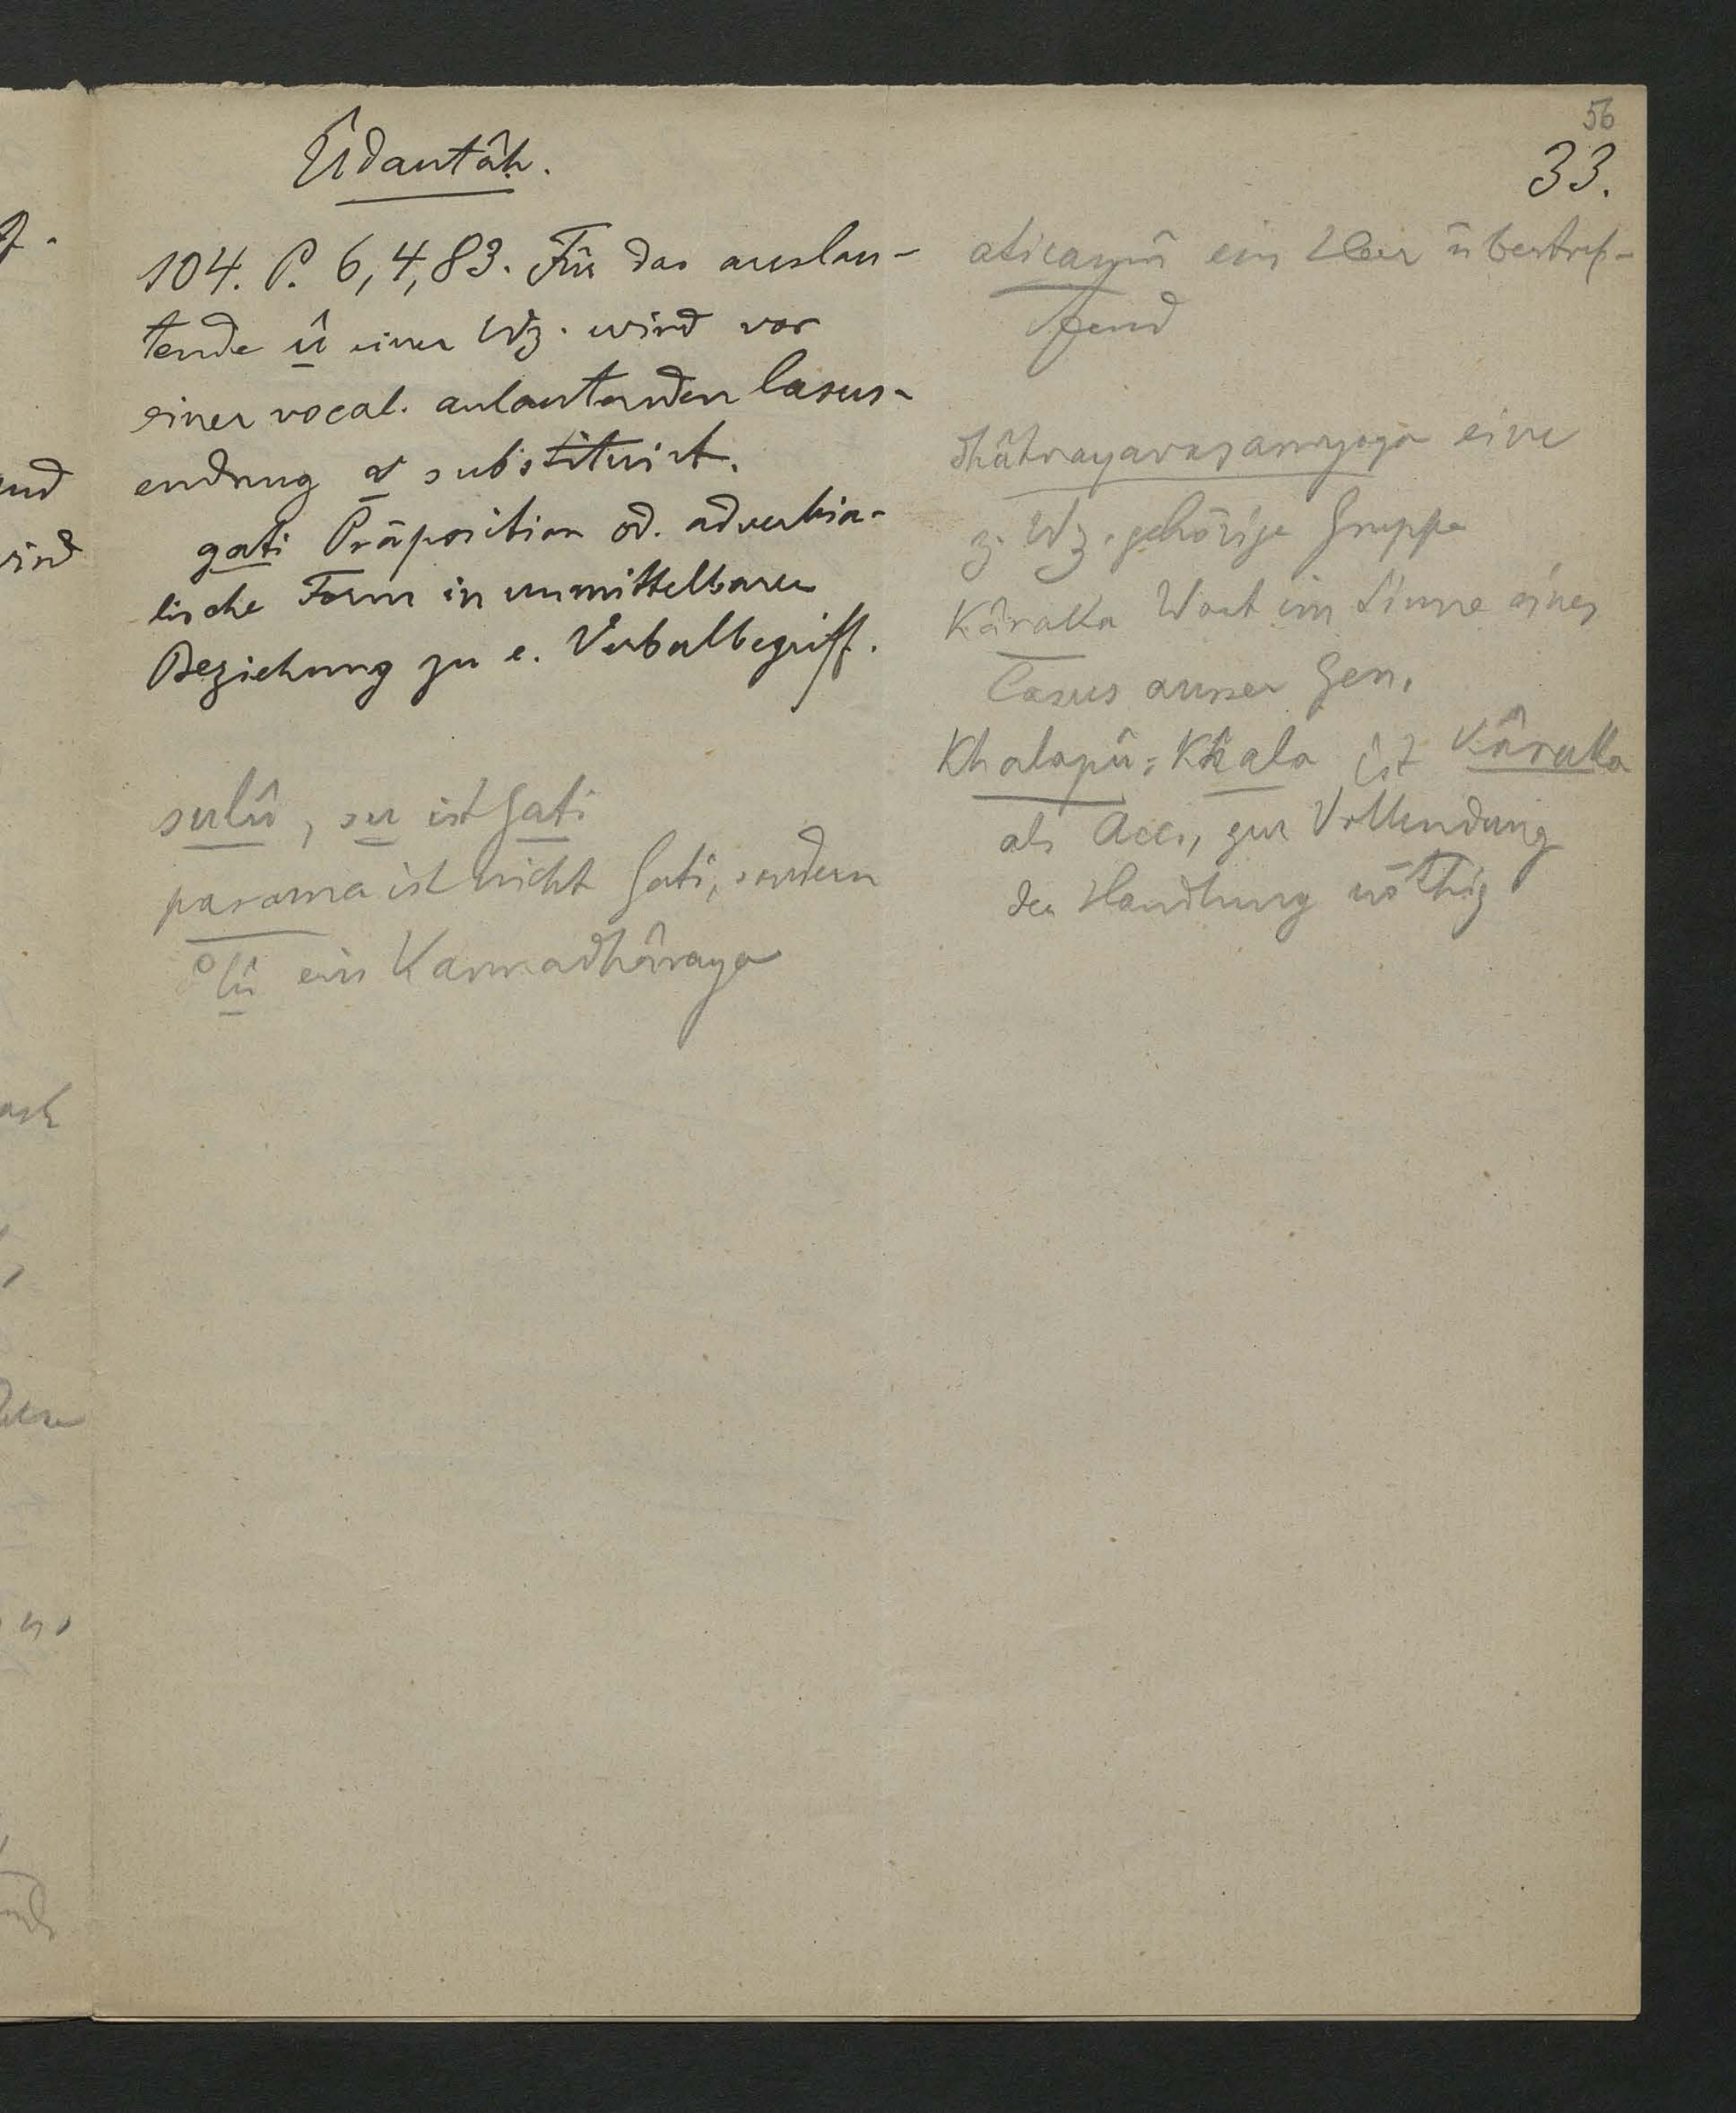 56
33.
Ûdantâḥ.
104. P. 6,4,83. Für das auslau-
tende û einer Wz. wird vor
einer vocal. anlautenden Casus-
endung v substituirt.
gati Präposition od. adverbia-
lische Form in unmittelbarer
Beziehung zu e. Verbalbegriff.
sulû, su ist Gati
parama ist nicht Gati, sondern
°lû ein Karmadhâraya
aticamû ein Heer übertref-
fend
dhâtvavayavasaṃyoga eine
z. Wz. gehörige Gruppe
Kâraka Wort im Sinne eines
Casus ausser Gen.
Khalapû: Khala ist Kâraka
als Acc., zur Vollendung
der Handlung nöthig